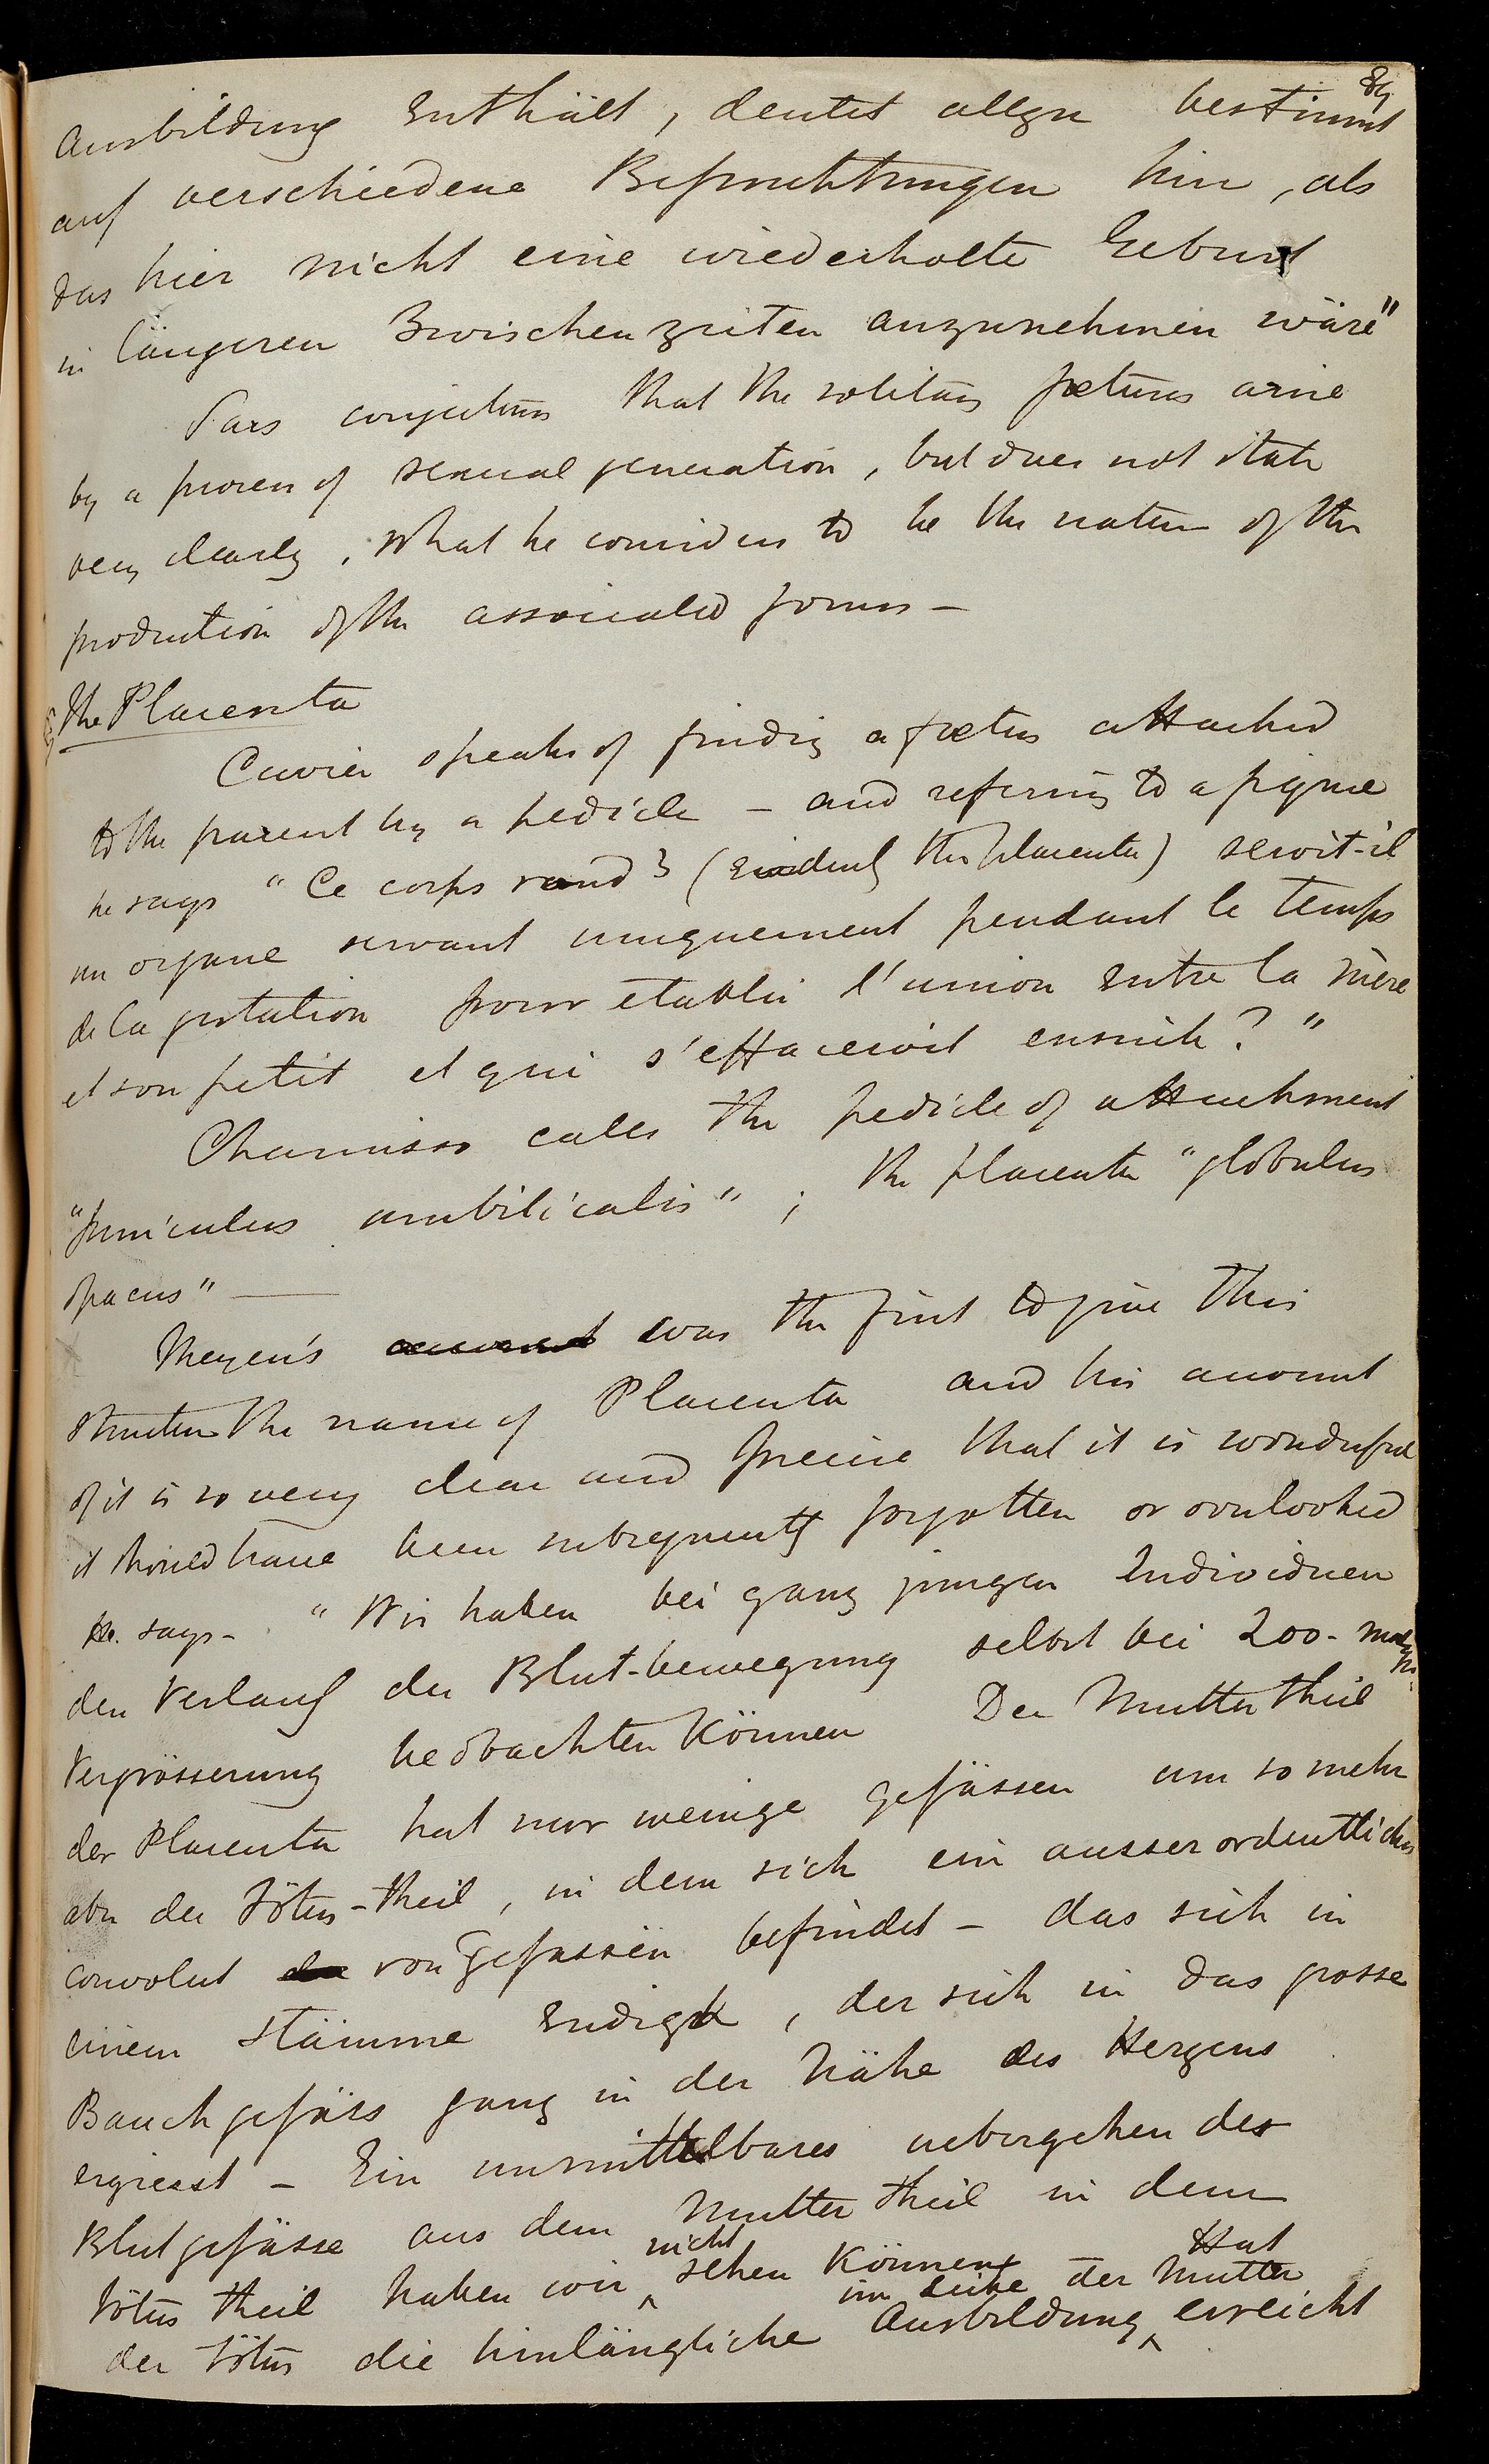 89
Ausbildung enthält, deutet allzu bestimmt
auf verschiedene Befruchtungen hin, als
das hier nicht eine wiederholte Geburt
in längeren Zwischenzeiten anzunehmen wäre"
Sars conjectures that the solitary fœtuses arise
by a process of sexual generation, but does not state
very clearly, what he considers to be the nature of the
production of the associated forms –
The Placenta
Cuvier speaks of finding a fœtus attached
to the parent by a pedicle – and referring to a figure
he says "Ce corps rond 3 (evidently the placenta) seroit-il
un organe servant uniquement pendant le temps
de la gestation pour etablir l'union entre la mère
et son petit et qui s'effaceroit ensuite?"
Chamisso calls the pedicle of attachment
"funiculus umbilicalis"; the placenta "globulus
opacus" —
Meyen's account was the first to give this
structure the name of Placenta and his account
of it is so very clear and precise that it is wonderful
it should have been subsequently forgotten or overlooked
He says – "Wir haben bei ganz jungen Individuen
den Verlauf der Blut-bewegung selbst bei 200-maliger
Vergrösserung beobachten können Der Mutter theil
der Placenta hat nur wenige gefässen um so mehr
aber der Fötus-theil, in dem sich ein ausserordentliches
convolut von Gefassen befindet – das sich in
einem stämme endigt, der sich in das grosse
Bauchgefäss ganz in der Nähe des Herzens
ergiesst – Ein unmittelbares uebergehen der
Blutgefässe aus dem Mutter theil in dem
Fötus theil haben wir nicht sehen können Hat
der Fötus die hinlängliche Ausbildung im Leibe der Mutter erreicht